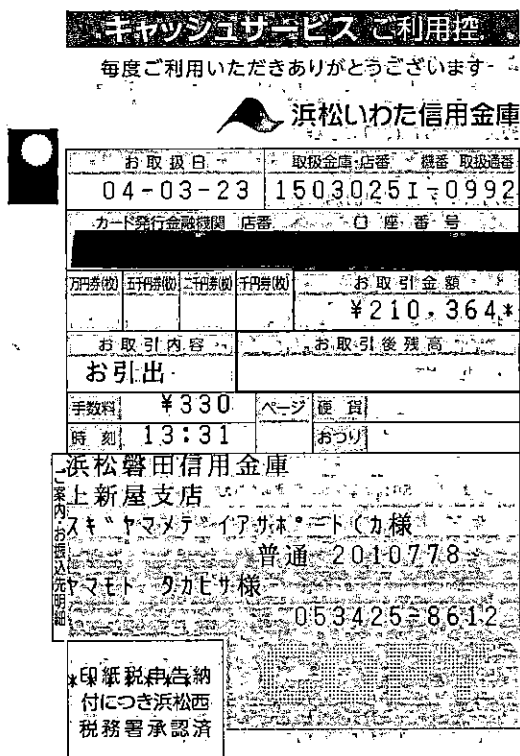 キャッシュサービス ご利用控
毎度ご利用いただきありがとうございます
浜松いわた信用金庫
お取扱日 取扱金庫・店番 機番 取扱通番
04-03-23 1503025I-0992
カード発行金融機関 店番 口座番号
万円券(枚) 五千円券(枚) 二千円券(枚) 千円券(枚) お取引金額
¥210,364*
お取引内容 お取引後残高
お引出
手数料 ¥330 ページ 硬貨
時刻 13:31 おつり
ご案内・お振込先明細
浜松磐田信用金庫
上新屋支店
スギヤマメデイアサポート(カ様
普通 2010778
ヤマモト タカヒサ様
053425-8612
印紙税申告納
付につき浜松西
税務署承認済